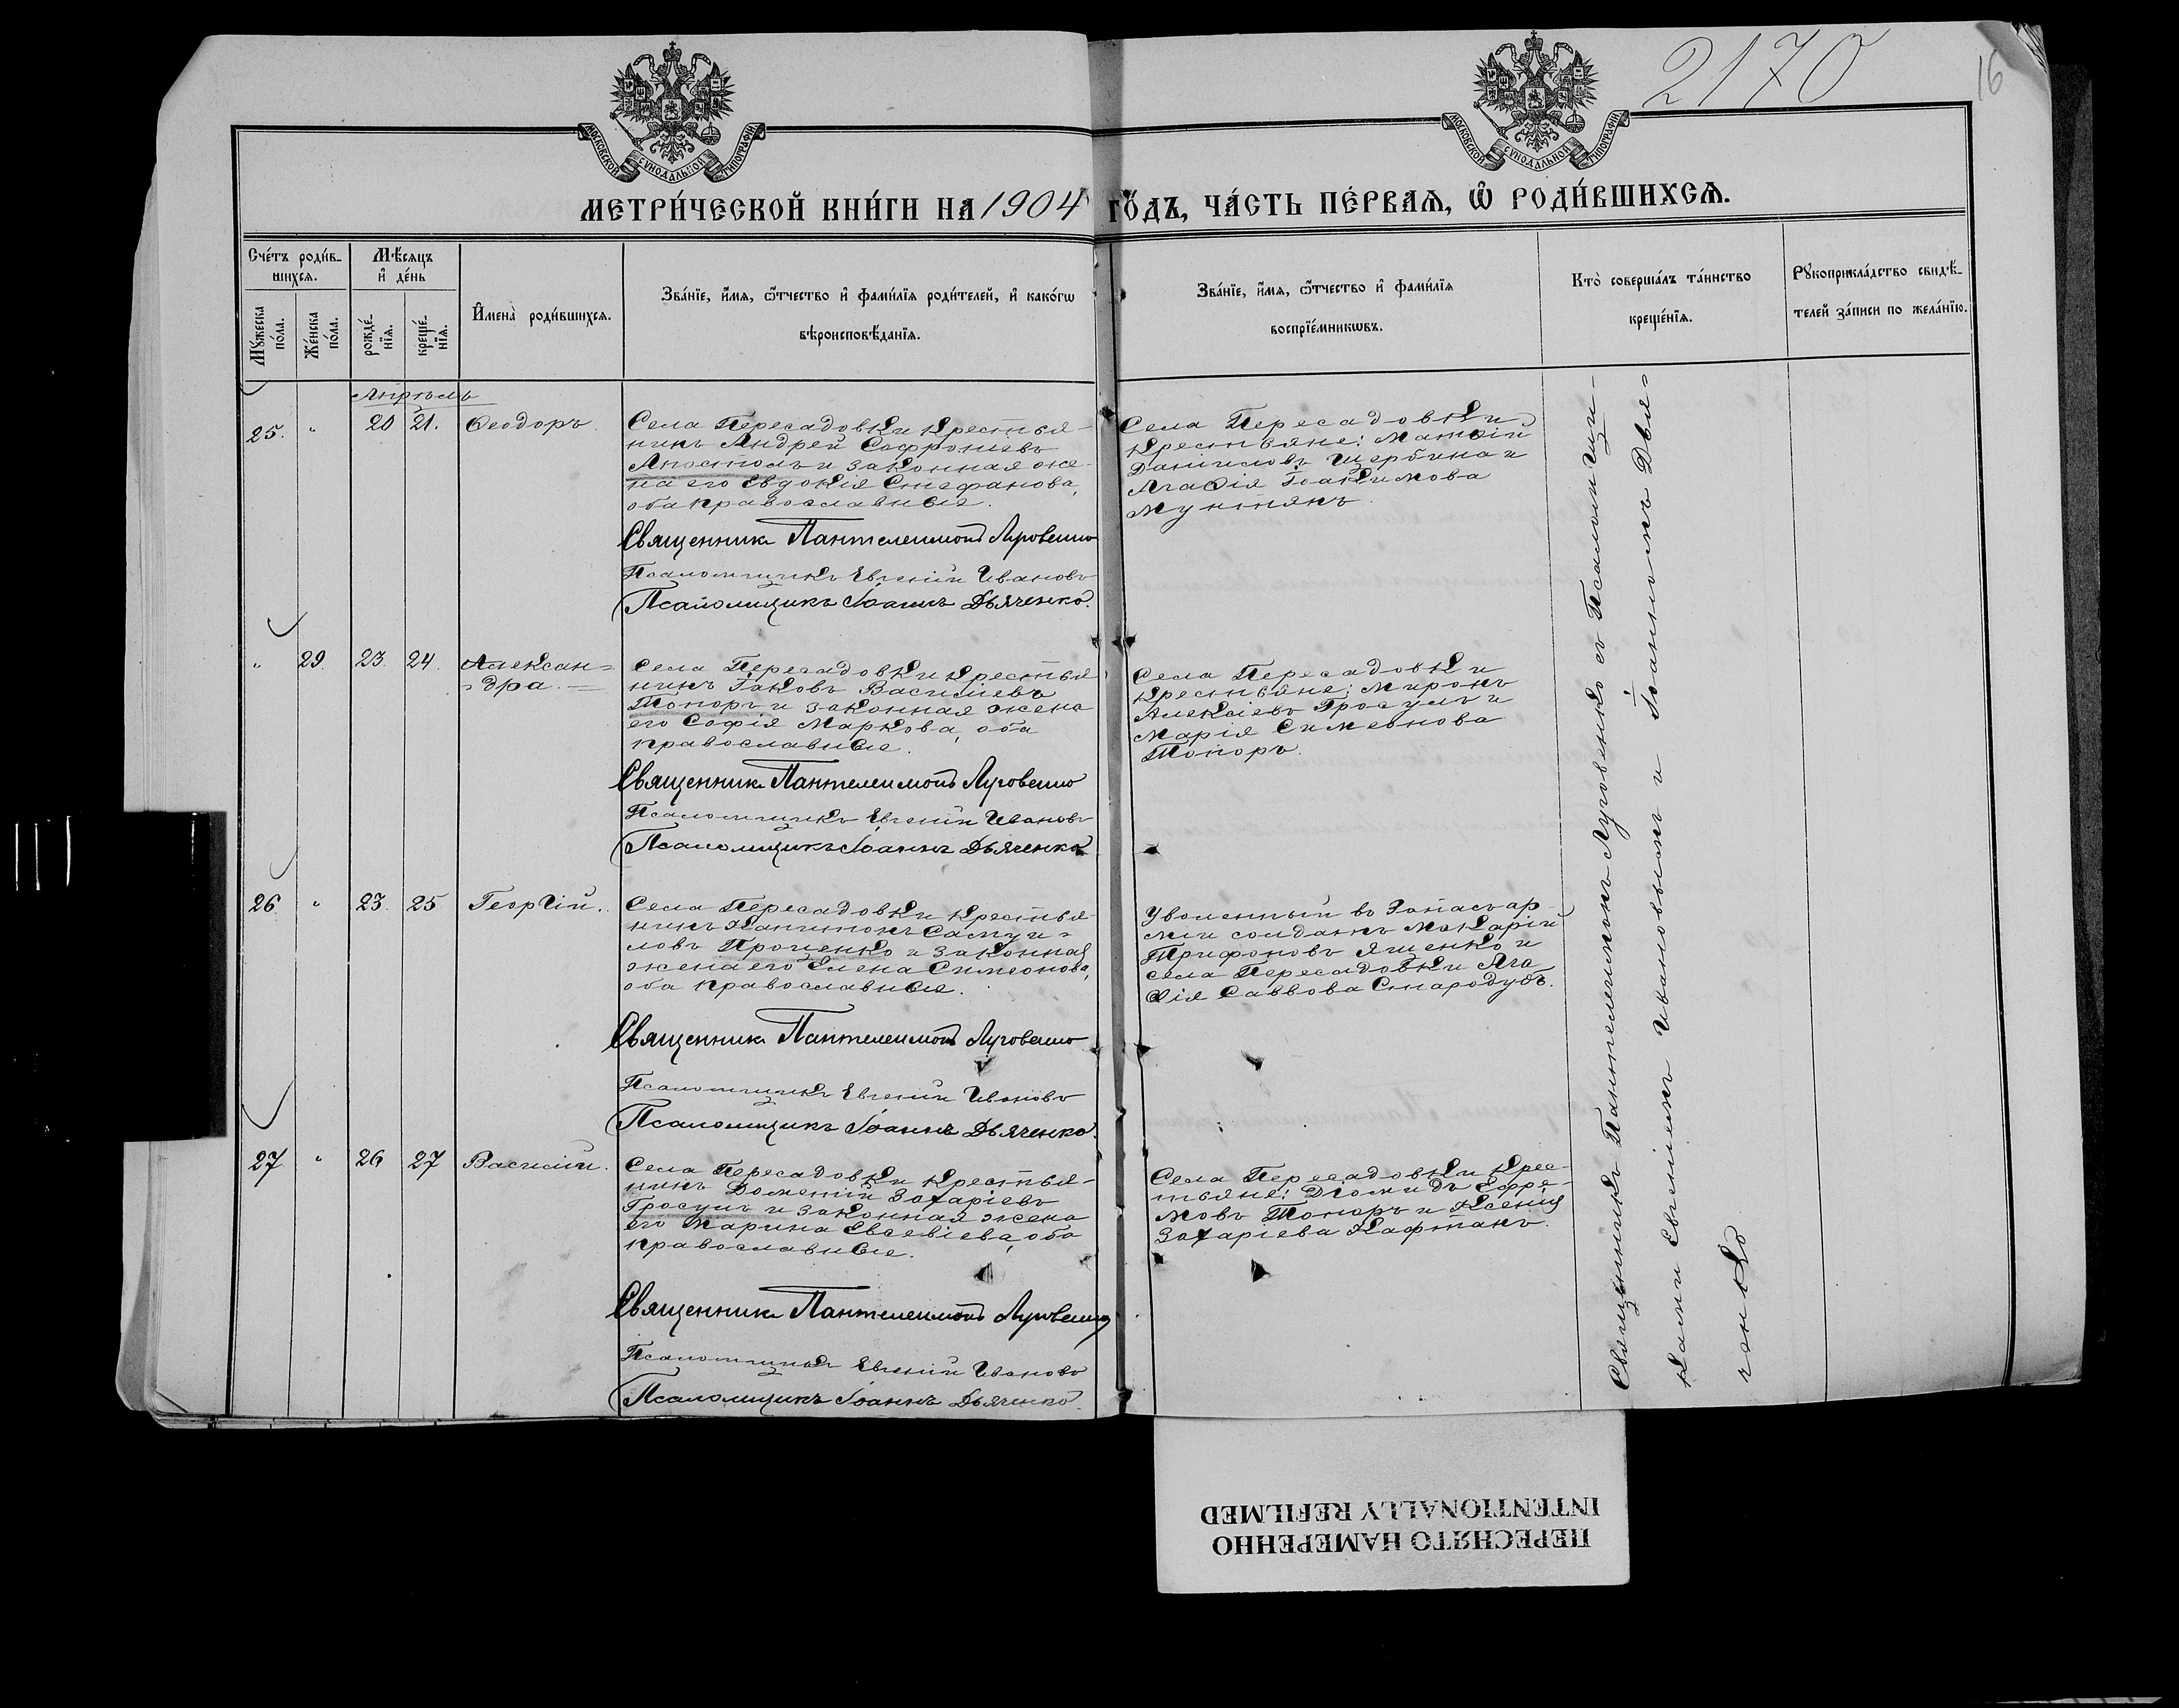 2170
16
МОСКОВСКОЙ СУНОДАЛЬНОЙ ТИПОГРАФІИ
МОСКОВСКОЙ СУНОДАЛЬНОЙ ТИПОГРАФІИ
МЕТРИ́ЧЕСКОЙ КНИ́ГИ НА 1904 ГО́ДЪ, ЧА́СТЬ ПЕ́РВАѦ, Ѡ҆ РОДИ́ВШИХСѦ.
Сче́тъ роди́в-
шихсѧ.
Мѣ́сѧцъ
и҆ де́нь
Мꙋ́жеска
по́ла.
Же́нска
по́ла.
рожде́-
нїѧ.
креще́-
нїѧ.
И҆мена̀ роди́вшихсѧ.
Зва́нїе, и҆́мѧ, ѻ҆́тчество и҆ фамѝлїѧ роди́телей, и҆ како́гѡ
вѣроисповѣ́данїѧ.
Зва́нїе, и҆́мѧ, ѻ҆́тчество и҆ фами́лїѧ
воспрїе́мникѡвъ.
Кто̀ соверша́лъ та́инство
креще́нїѧ.
Рꙋкоприкла́дство свидѣ́-
телей за́писи по жела́нїю.
Апрѣль
25. " 20 21. Ѳеодоръ.
Села Пересадовки крестья-
нинъ Андрей Софроніевъ
Апостолъ и законная же-
на его Евдокія Стефанова,
оба православные.
Священникъ Пантелеимонъ Луговенко
Псаломщикъ Евгеній Ивановъ
Псаломщикъ Іоаннъ Дьяченко.
Села Пересадовки
крестьяне: Матѳій
Даніиловъ Щербина и
Агаѳія Іоакимова
Мунтянъ.
" 29. 23. 24. Алексан=
=дра.=
Села Пересадовки крестья
нинъ Іаковъ Василіевъ
Топоръ и законная жена
его Софія Маркова, оба
православные.
Священникъ Пантелеимонъ Луговенко
Псаломщикъ Евгеній Ивановъ
Псаломщикъ Іоаннъ Дьяченко
Села Пересадовки
крестьяне: Миронъ
Алексіевъ Гросулъ и
Марія Симеонова
Топоръ.
26. " 23. 25 Георгій.
Села Пересадовки крестья-
нинъ Капитонъ Самуи=
ловъ Проценко и законная
жена его Елена Симеонова,
оба православные.
Священникъ Пантелеимонъ Луговенко
Псаломщикъ Евгеній Ивановъ
Псаломщикъ Іоаннъ Дьяченко.
Уволенный въ Запасъ ар-
міи солдатъ Макарій
Трифоновъ Яценко и
села Пересадовки Ага
ѳія Саввова Стародубъ.
27 " 26 27 Василій.
Села Пересадовки крестья-
нинъ Дометій Захаріевъ
Гросулъ и законная жена
его Марина Евсевіева, оба
православные.
Священникъ Пантелеимонъ Луговенко
Псаломщикъ Евгеній Ивановъ
Псаломщикъ Іоаннъ Дьяченко.
Села Пересадовки крес-
тьяне: Діомидъ Ефре-
мовъ Топоръ и Ксенія
Захаріева Кафтанъ.
Священникъ Пантелеимонъ Луговенко съ Псаломщи-
ками Евгеніемъ Ивановымъ и Іоанномъ Дья=
ченко
ПЕРЕСНЯТО НАМЕРЕННО
INTENTIONALLY REFILMED